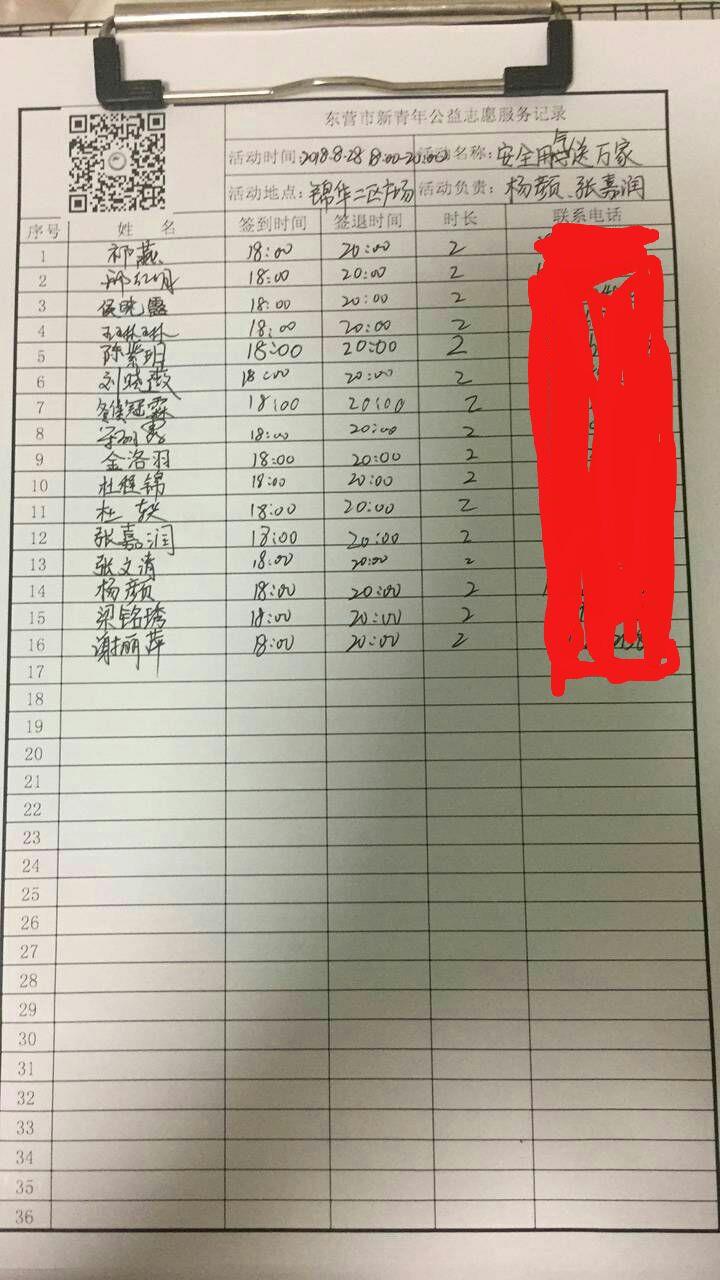 东营市新青年公益志愿服务记录
活动时间:2018.8.28 18:00-20:00 活动名称:安全用气送万家
活动地点:锦华二区广场 活动负责:杨颜、张嘉润
序号 姓 名 签到时间 签退时间 时长 联系电话
1 祁燕 18:00 20:00 2
2 邢红月 18:00 20:00 2
3 侯晓露 18:00 20:00 2
4 王琳琳 18:00 20:00 2
5 陈紫玥 18:00 20:00 2
6 刘晓薇 18:00 20:00 2
7 冠霖 18:00 20:00 2
8 18:00 20:00 2
9 金洛羽 18:00 20:00 2
10 杜程锦 18:00 20:00 2
11 杜 18:00 20:00 2
12 张嘉润 18:00 20:00 2
13 张文清 18:00 20:00 2
14 杨颜 18:00 20:00 2
15 梁铭琇 18:00 20:00 2
16 谢丽萍 18:00 20:00 2
17
18
19
20
21
22
23
24
25
26
27
28
29
30
31
32
33
34
35
36